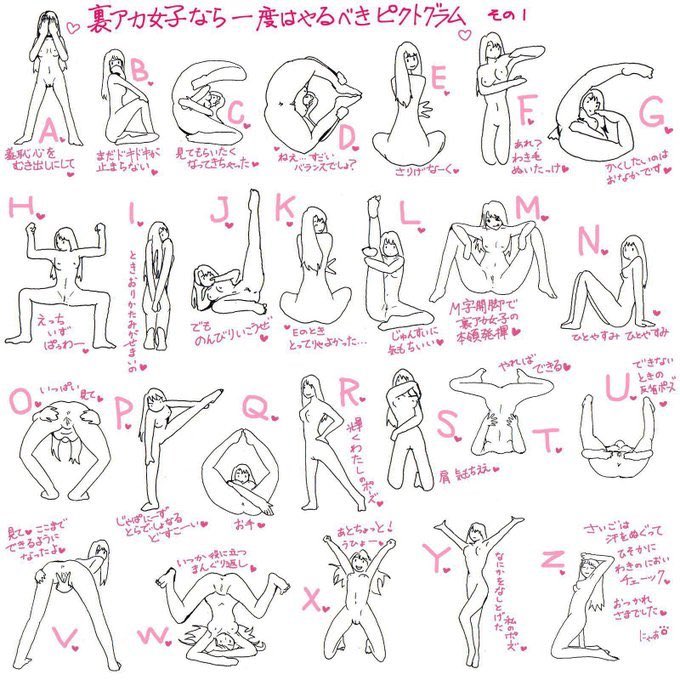 裏アカ女子なら一度はやるべきピクトグラム その1
A
羞恥心を
むき出しにして
B
まだドキドキが
止まらない
C
見てもらいたく
なってきちゃった
D
ねぇ…すごい
バランスでしょ?
E
さりげなーく
F
あれ?
わき毛
ぬいたっけ
G
かくしたいのは
おなかです
H
えっち
いず
ぱぅわー
I
ときおりかたみがせまいの
J
でも
のんびりいこうぜ
K
Eのとき
とってりゃよかった…
L
じゅんすいに
気もちいい
M
M字開脚で
裏アカ女子の
本領発揮
N
ひとやすみ ひとやすみ
O
いっぱい見て
P
じゃぱにーず
とらでぃしょなる
どすこーい
Q
お手
R
輝くわたしのポーズ
S
肩気もちええ
T
やれば
できる
U
できない
ときの
反省ポーズ
V
見て ここまで
できるように
なったよ
W
いつか役に立つ
まんぐり返し
X
あとちょっと!
うひょー
Y
なにかをなしとげた
私のポーズ
Z
さいごは
汗をぬぐって
ひそかに
わきのにおい
チェーック
おつかれ
さまでした
にゃあ